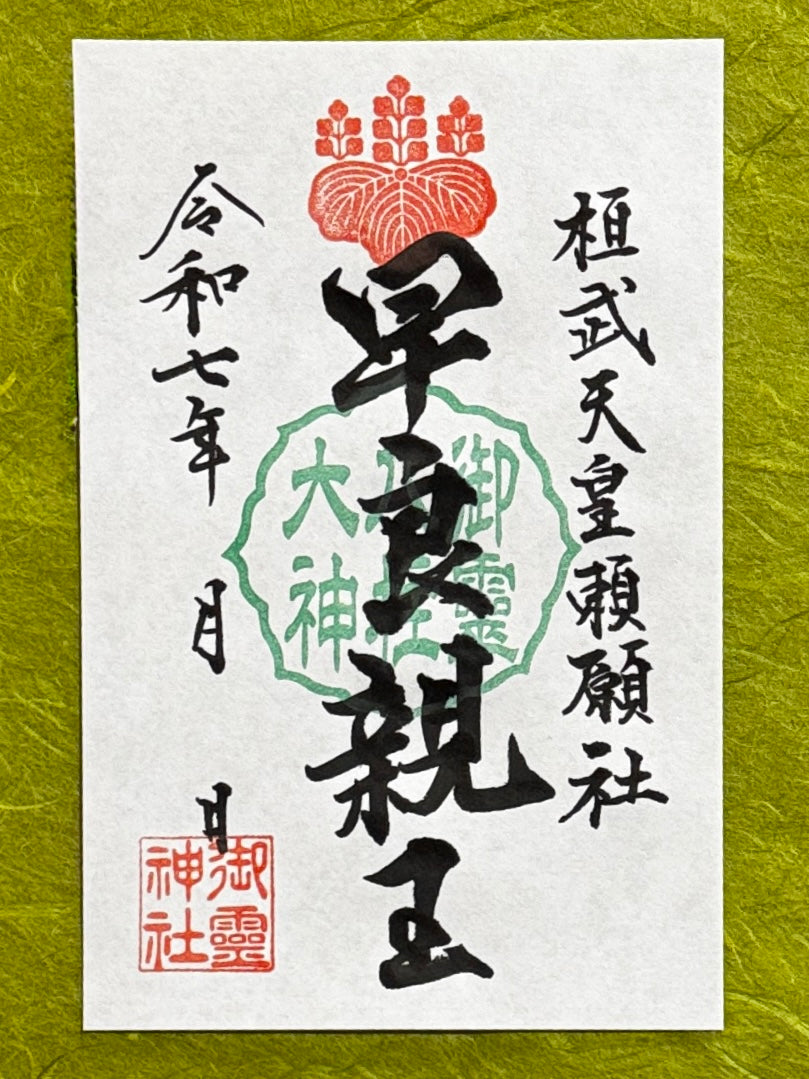 桓武天皇頼願社
早良親王
御靈
八社
大神
令和七年 月 日
御靈
神社